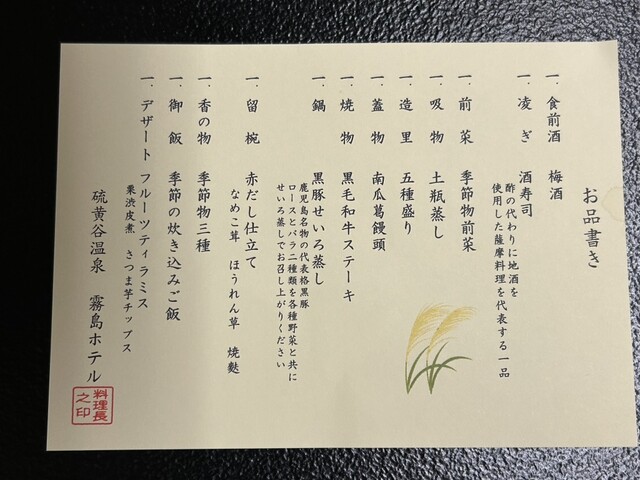 お品書き
一．食前酒　梅酒
一．凌ぎ　酒寿司
酢の代わりに地酒を
使用した薩摩料理を代表する一品
一．前菜　季節物前菜
一．吸物　土瓶蒸し
一．造里　五種盛り
一．蓋物　南瓜葛饅頭
一．焼物　黒毛和牛ステーキ
一．鍋　黒豚せいろ蒸し
鹿児島名物の代表格黒豚
ロースとバラ二種類を各種野菜と共に
せいろ蒸しでお召し上がりください
一．留椀　赤だし仕立て
なめこ茸　ほうれん草　焼麩
一．香の物　季節物三種
一．御飯　季節の炊き込みご飯
一．デザート　フルーツティラミス
栗渋皮煮　さつま芋チップス
硫黄谷温泉　霧島ホテル
料理長
之印